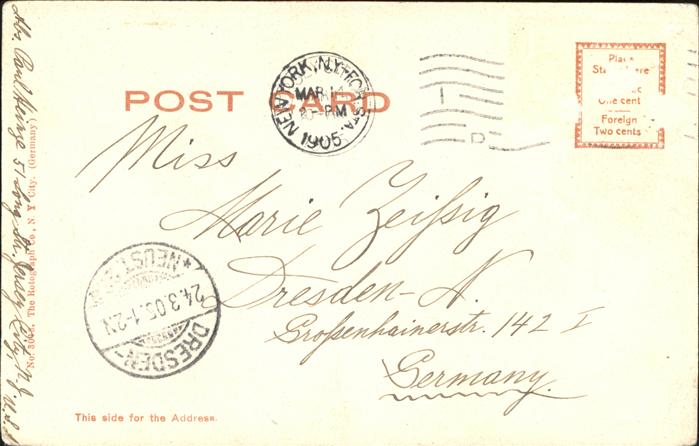 POST CARD
NEW YORK, N.Y. FOR. STA.
MAR 14
PM
1905
I
D
Place
Stamp Here
One cent
Foreign
Two cents
Miss
Marie Zeißig
Dresden-N.
Großenhainerstr. 142 I
Germany.
DRESDEN-
NEUST
24.3.05.1-2N
This side for the Address.
Abs. Paul Heinze 51 Long Str. Jersey City, N.J. U.S.
The Rotograph Co., N. Y. City. (Germany.)